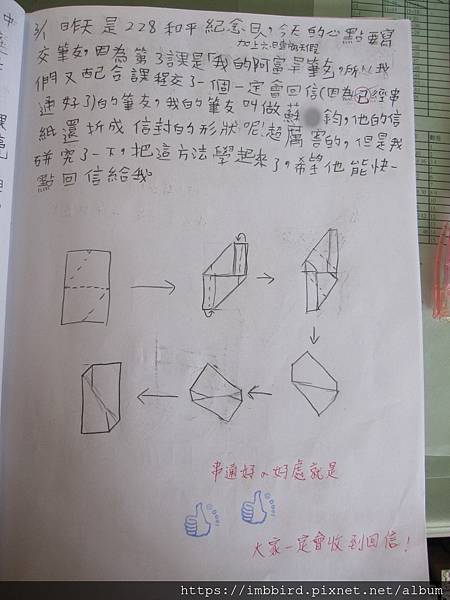 3/1 昨天是228和平紀念日,今天的心點要寫
加上六日連放三天假
交筆友,因為第3課是「我的阿富旱筆友」,所以我
們又配合課程交了一個一定會回信(因為已經串
通好了)的筆友,我的筆友叫做蘇 鈞,他的信
紙還折成信封的形狀呢!超厲害的,但是我
研究了一下,把這方法學起來了,希望他能快一
點回信給我。
串通好的好處就是
大家一定會收到回信!
https://imbbird.pixnet.net/album